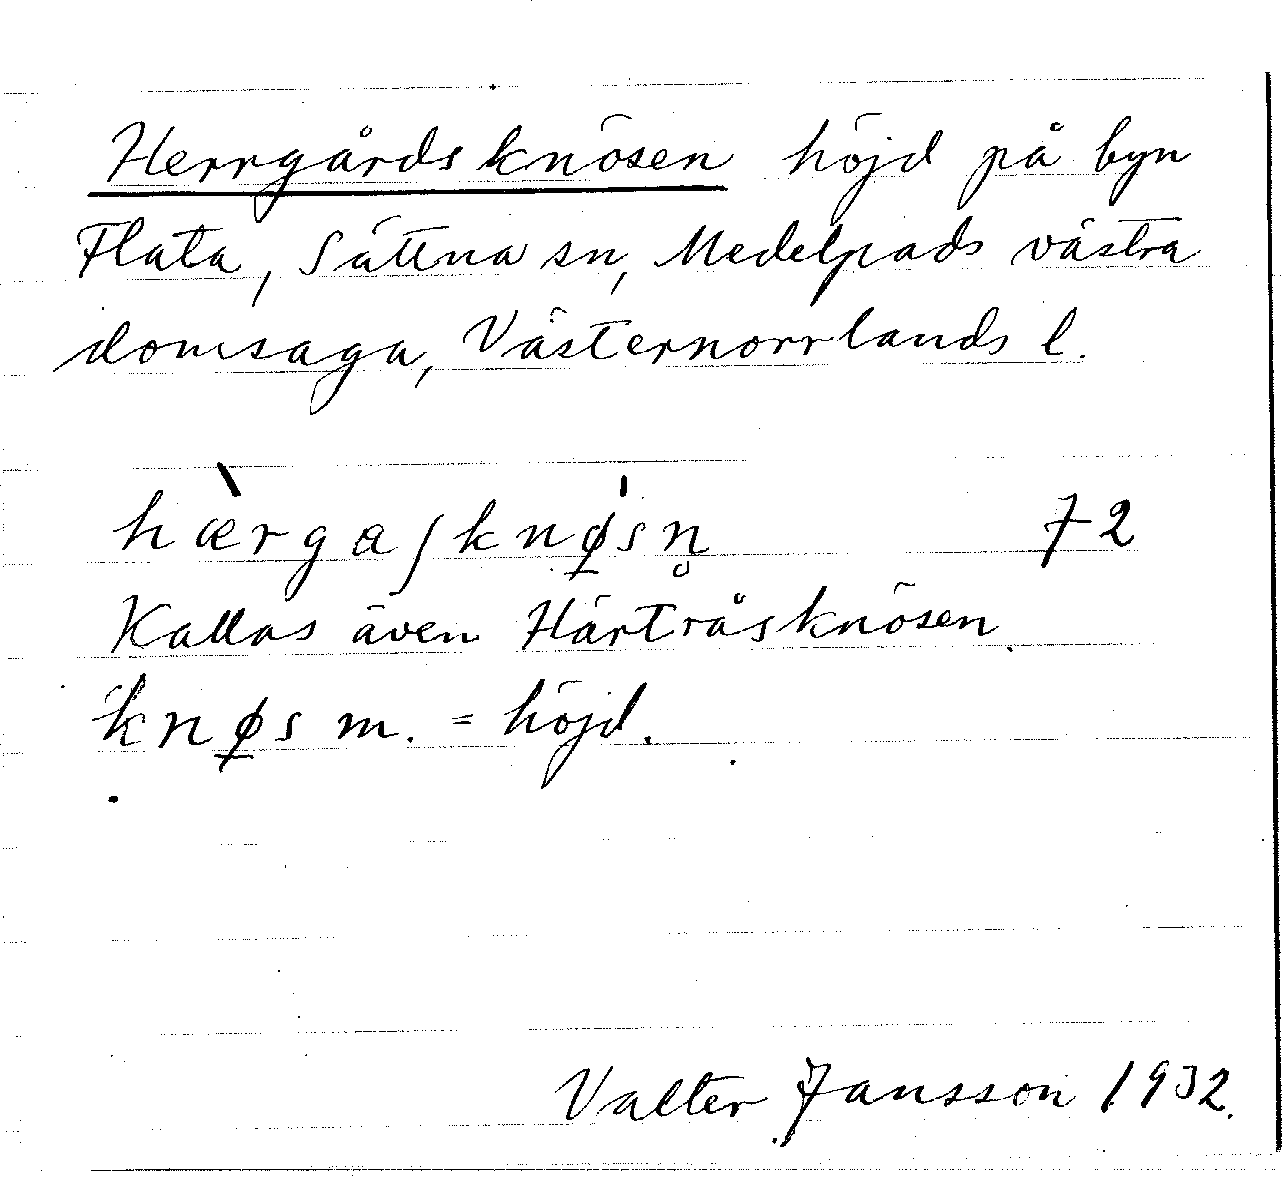 Herrgårdsknösen höjd på byn
Flata, Sättna sn, Medelpads västra
domsaga, Västernorrlands l.
hæ̀rgaʃknǿ̱sn̥ 72
Kallas även Härtråsknösen.
knø̱s m. = höjd.
Valter Jansson 1932.